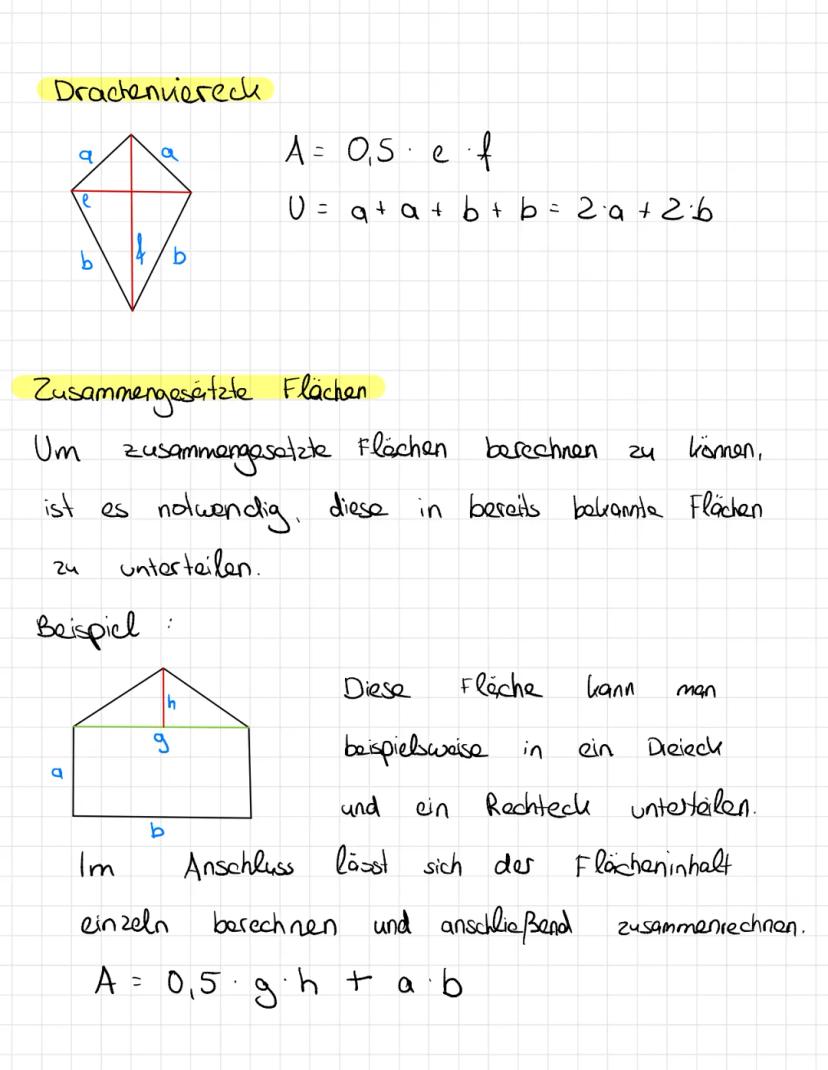 Drachenviereck
a a
e
b f b
A = 0,5 · e · f
U = a + a + b + b = 2·a + 2·b
Zusammengesetzte Flächen
Um zusammengesetzte Flächen berechnen zu können,
ist es notwendig, diese in bereits bekannte Flächen
zu unterteilen.
Beispiel :
h
g
a
b
Diese Fläche kann man
beispielsweise in ein Dreieck
und ein Rechteck unterteilen.
Im Anschluss lässt sich der Flächeninhalt
einzeln berechnen und anschließend zusammenrechnen.
A = 0,5 · g · h + a · b